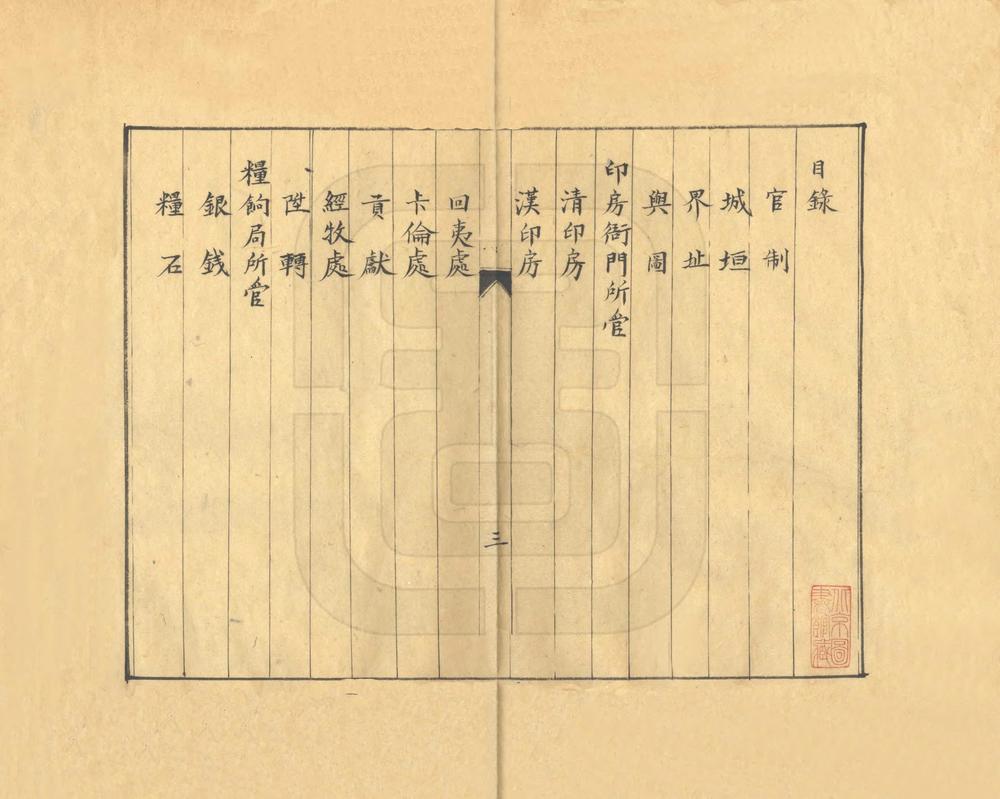 目錄
官制
城垣
界址
輿圖
印房衙門所管
清印房
漢印房
三
回夷處
卡倫處
貢獻
經牧處
陞轉
糧餉局所管
銀錢
糧石